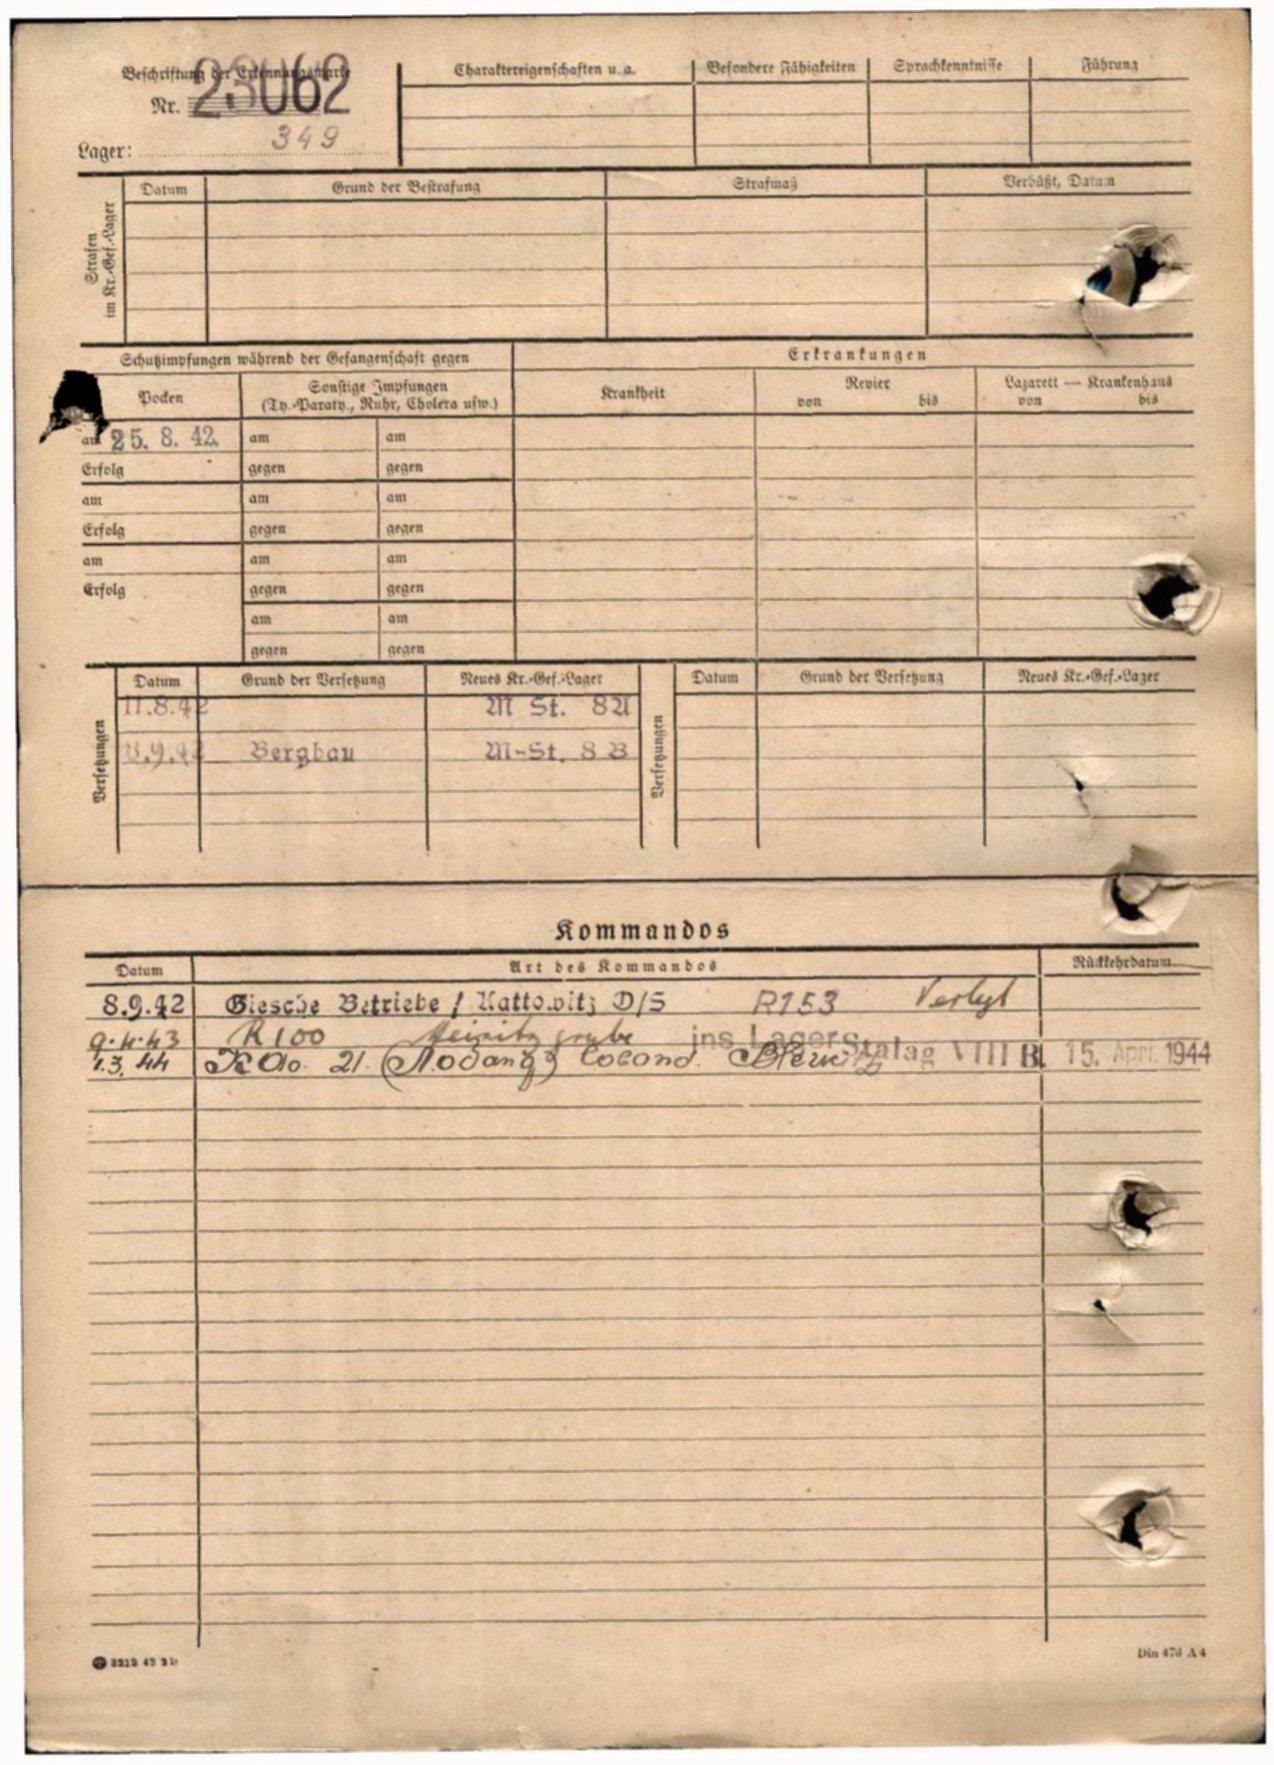 Beschriftung der Erkennungsmarke
Nr. 23062
349
Lager:
Charaktereigenschaften u. a.
Besondere Fähigkeiten
Sprachkenntnisse
Führung
Strafen im Kr.-Gef.-Lager
Datum
Grund der Bestrafung
Strafmaß
Verbüßt, Datum
Schutzimpfungen während der Gefangenschaft gegen
Erkrankungen
Pocken
Sonstige Impfungen
(Ty.-Paraty., Ruhr, Cholera usw.)
Krankheit
Revier
von bis
Lazarett — Krankenhaus
von bis
am 25. 8. 42. am am
Erfolg gegen gegen
am am am
Erfolg gegen gegen
am am am
Erfolg gegen gegen
am am
gegen gegen
Versetzungen
Datum Grund der Versetzung Neues Kr.-Gef.-Lager
11.8.42 M St. 8A
8.9.42 Bergbau M-St. 8 B
Versetzungen
Datum Grund der Versetzung Neues Kr.-Gef.-Lager
Kommandos
Datum Art des Kommandos Rückkehrdatum
8.9.42 Giesche Betriebe / Kattowitz D/S R153 Verlegt
9.4.43 R 100 Heinitzgrube ins Lager Stalag VIII B. 15. Apr. 1944
1.3.44 21.
3212 42 2D
Din 476 A 4